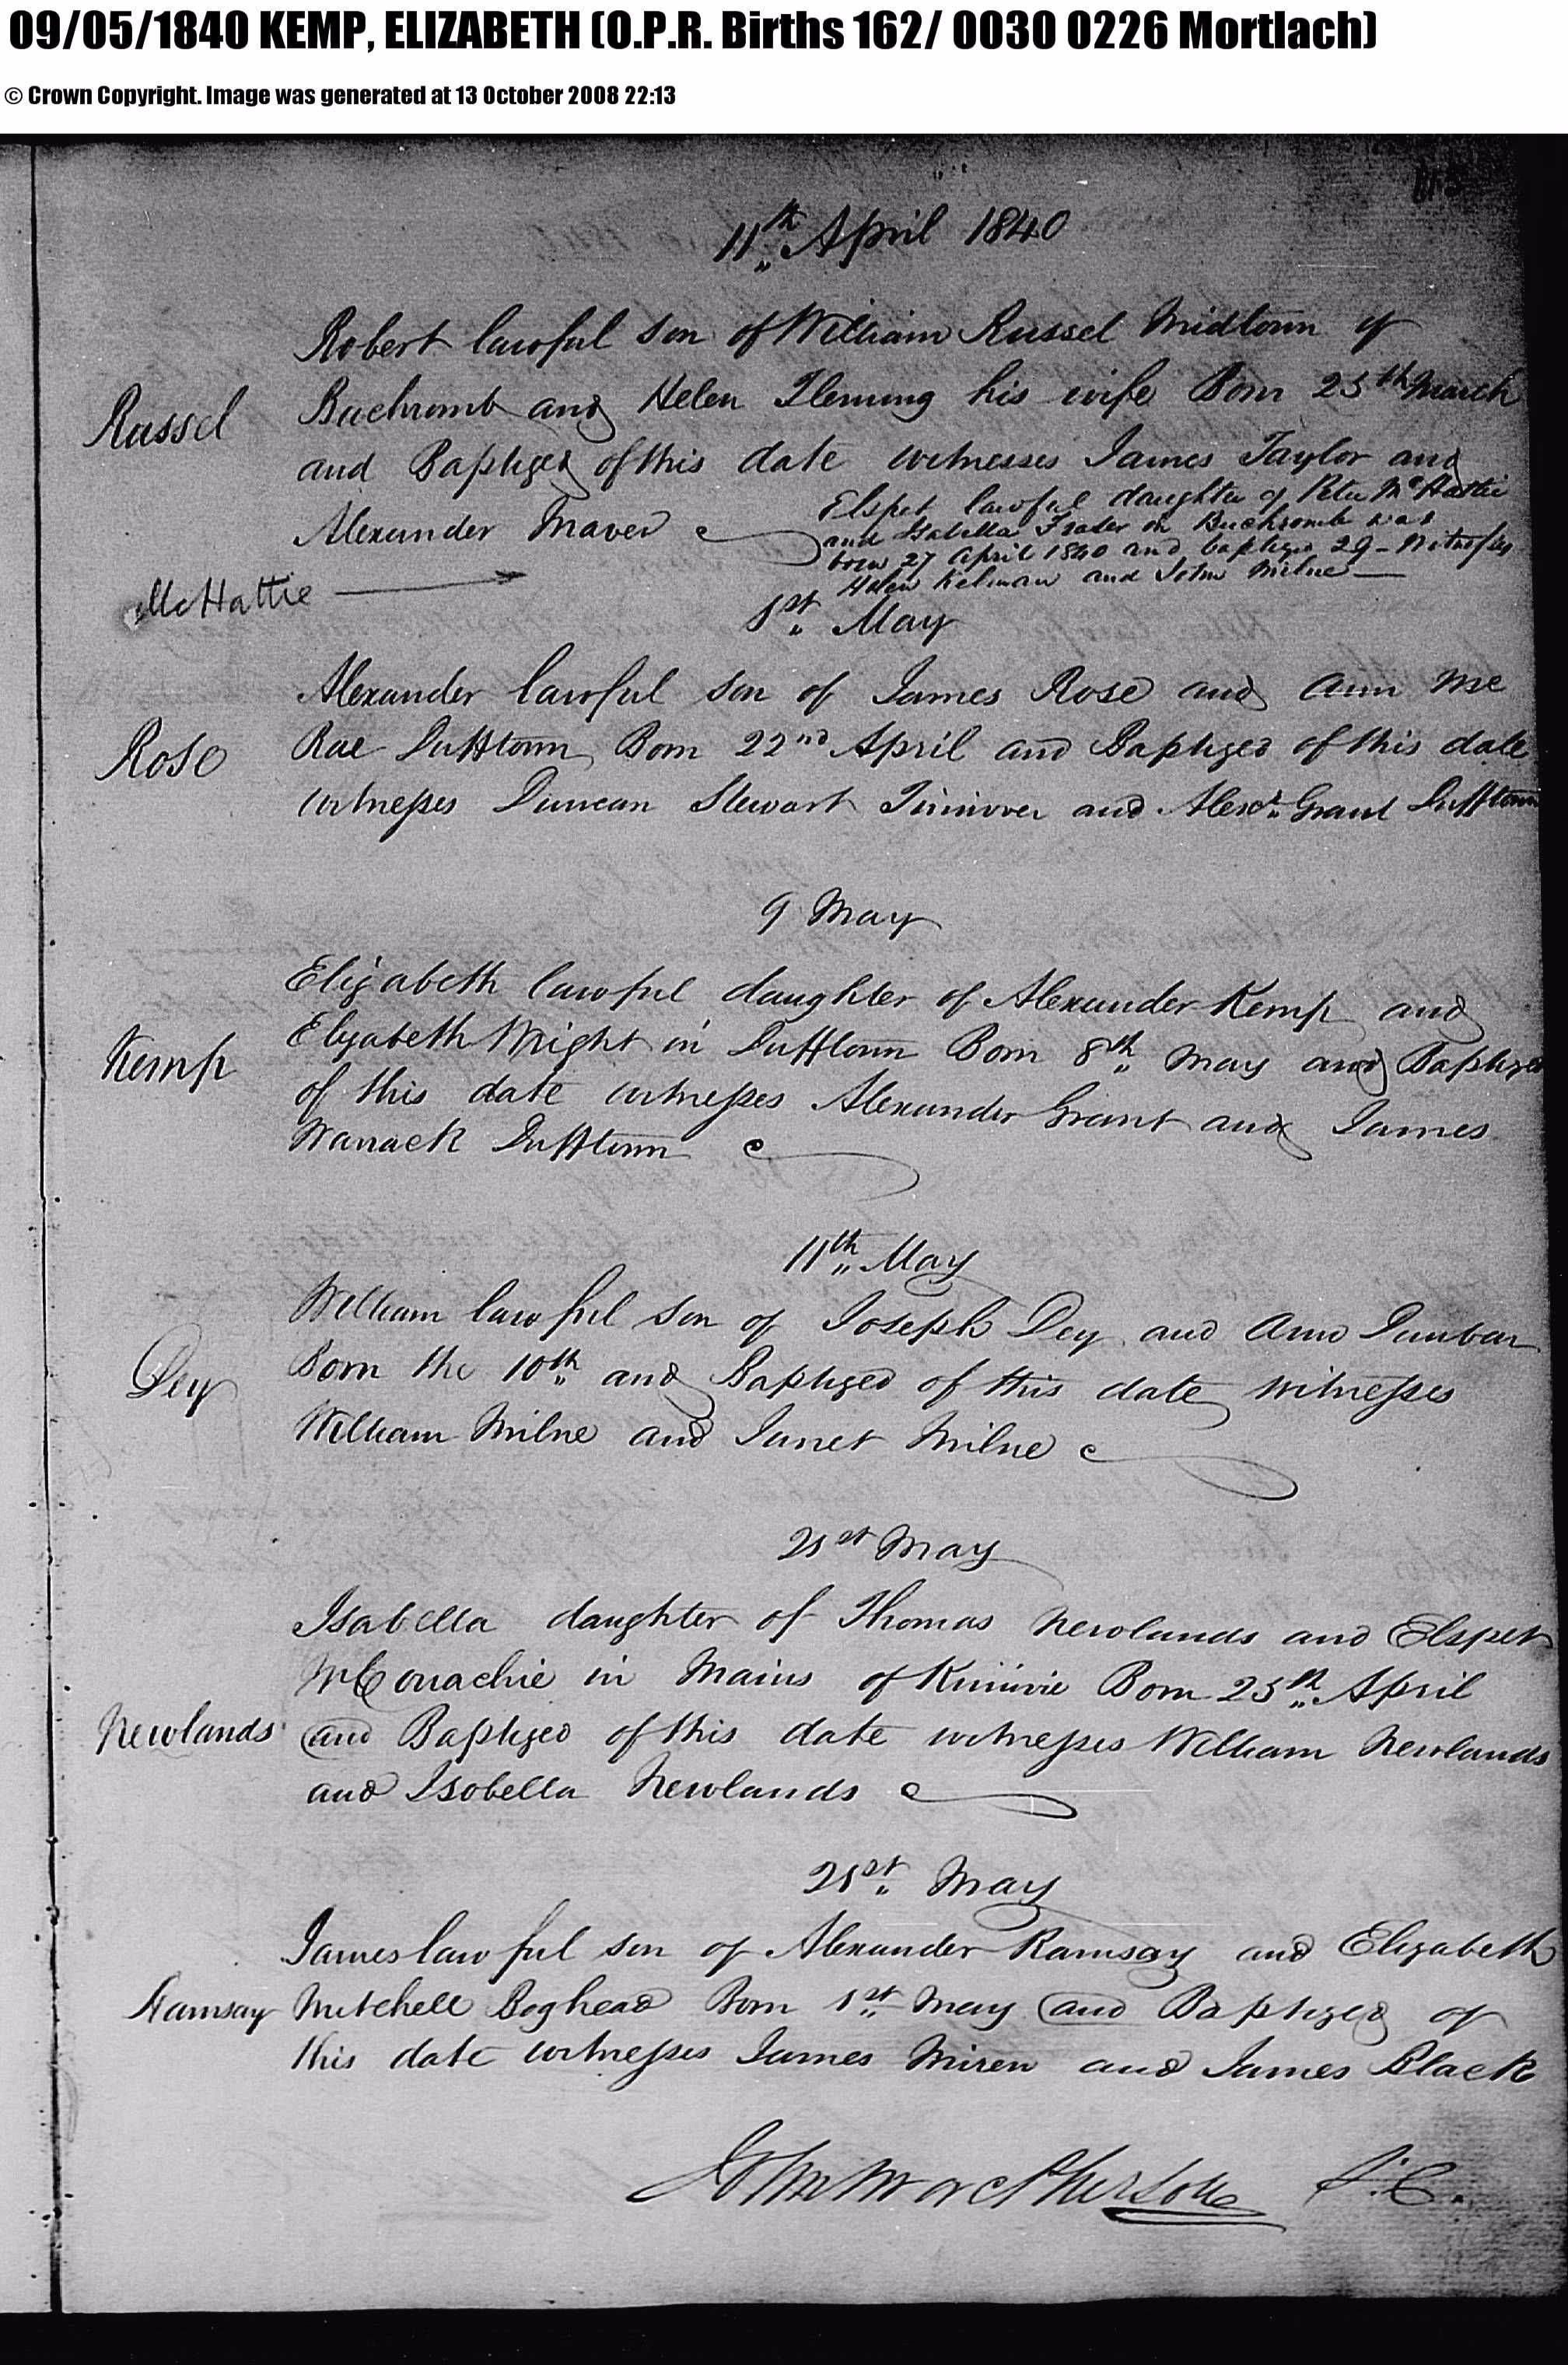 09/05/1840 KEMP, ELIZABETH (O.P.R. Births 162/ 0030 0226 Mortlach)
© Crown Copyright. Image was generated at 13 October 2008 22:13
11th April 1840
Robert lawful son of William Russel Midtown of
Russel
Buchromb and Helen Fleming his wife Born 25th March
and Baptized of this date witnesses James Taylor and
Alexander Maver
Elspet lawful daughter of Peter McHattie
and Isabella Frater in Buchromb was
born 27 April 1840 and baptized 29 - Witnesses
Helen Kelman and John Milne
McHattie
1st May
Alexander lawful son of James Rose and Ann Mc
Rose
Rae Dufftown Born 22nd April and Baptized of this date
witnesses Duncan Stewart Tininver and Alexr. Grant Dufftown
9 May
Elizabeth lawful daughter of Alexander Kemp and
Kemp
Elizabeth Wright in Dufftown Born 8th May and Baptized
of this date witnesses Alexander Grant and James
Wanack Dufftown
11th May
William lawful son of Joseph Dey and Ann Dunbar
Dey
Born the 10th and Baptized of this date witnesses
William Milne and Janet Milne
21st May
Isabella daughter of Thomas Newlands and Elspet
McConachie in Mains of Kininvie Born 25th April
Newlands
and Baptized of this date witnesses William Newlands
and Isobella Newlands
21st May
James lawful son of Alexander Ramsay and Elizabeth
Ramsay
Mitchell Boghead Born 1st May and Baptized of
this date witnesses James Miren and James Black
John MacPherson S.C.